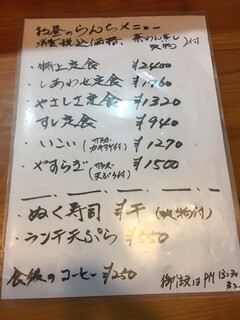 お昼のらんちメニュー
消費税込価格、茶わん蒸し 吸物 付
・特上定食 ¥2400
・しあわせ定食 ¥1760
・やさしさ定食 ¥1320
・すし定食 ¥940
・いこい ¥1270
・やすらぎ ¥1500
ぬく寿司 ¥千 (吸物付)
ランチ天ぷら ¥550
食後のコーヒー ¥250
御注文は PM 13:30